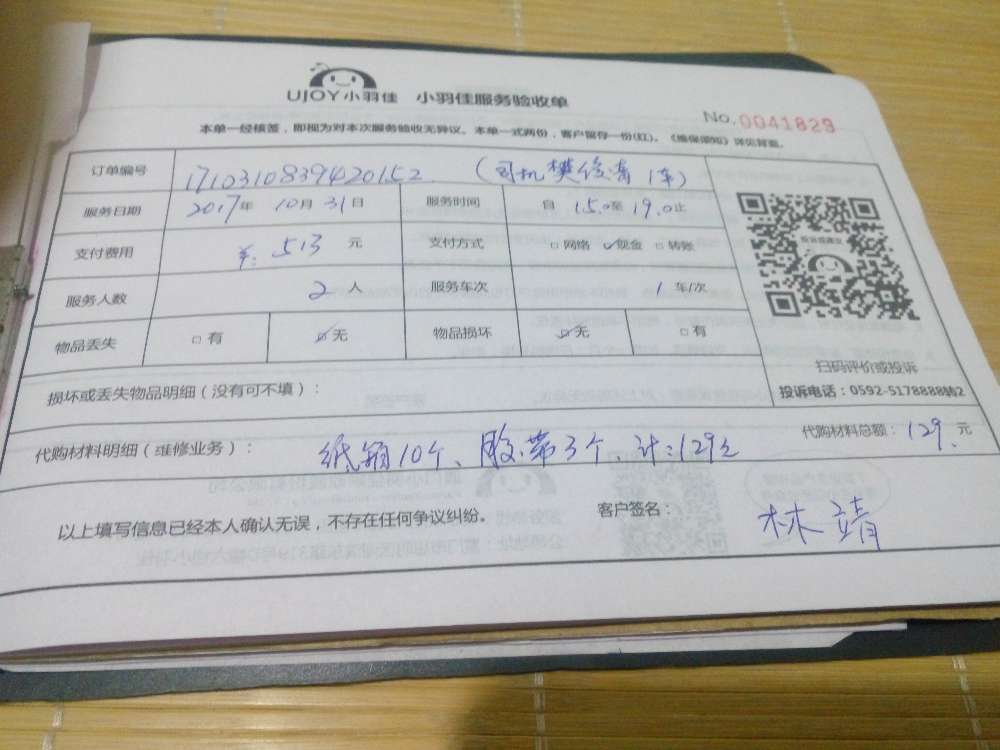 UJOY小羽佳 小羽佳服务验收单
No.0041829
本单一经核签，即视为对本次服务验收无异议。本单一式两份，客户留存一份(红)。《维保须知》详见背面。
订单编号 1710310839420152 (司机樊 1车)
服务日期 2017年10月31日 服务时间 自15.0至19.0止
支付费用 ¥：513元 支付方式 □网络 ☑现金 □转账
服务人数 2人 服务车次 1车/次
物品丢失 □有 ☑无 物品损坏 ☑无 □有
扫码评价或投诉
投诉电话：0592-5178888转2
损坏或丢失物品明细（没有可不填）：
代购材料明细（维修业务）： 纸箱10个、胶带3个、计：129元
代购材料总额：129.元
以上填写信息已经本人确认无误，不存在任何争议纠纷。
客户签名： 林靖